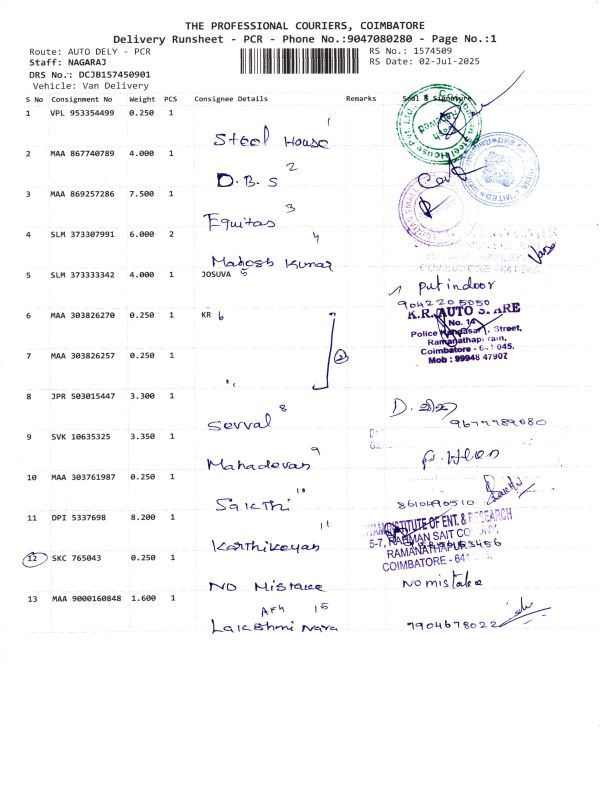 THE PROFESSIONAL COURIERS, COIMBATORE
Delivery Runsheet - PCR - Phone No.:9047080280 - Page No.:1
Route: AUTO DELY - PCR RS No.: 1574509
Staff: NAGARAJ RS Date: 02-Jul-2025
DRS No.: DCJB157450901
Vehicle: Van Delivery
S No Consignment No Weight PCS Consignee Details Remarks Seal & Signature
1 VPL 953354499 0.250 1 1
Steel House
2 MAA 867740789 4.000 1 2
D.B.S
3 MAA 869257286 7.500 1 3
Equitas
4 SLM 373307991 6.000 2 4
Mahesh Kumar
COIMBATORE - 641
5 SLM 373333342 4.000 1 JOSUVA 5
put indoor
9042205050
6 MAA 303826270 0.250 1 KR 6
K.R. AUTO
No. 14
Police Street,
Ramanathapuram,
Coimbatore - 641 045.
Mob : 99948 47907
7 MAA 303826257 0.250 1
2
8 JPR 503015447 3.300 1 8
Sevval
9677789080
9 SVK 10635325 3.350 1 9
Mahadevan
10 MAA 303761987 0.250 1 10
Sakthi
8610490510
11 DPI 5337698 8.200 1 11
Karthikeyan
INSTITUTE OF ENT. & RESEARCH
5-7, RAHMAN SAIT
RAMANATHAPURAM
COIMBATORE - 641
12 SKC 765043 0.250 1
NO Mistake
No mistake
13 MAA 9000160848 1.600 1 15
Lakshmi Nara
7904678022